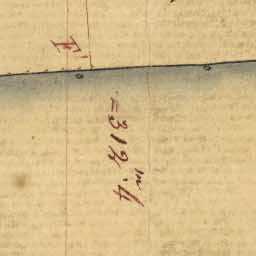 F'
=312.m4